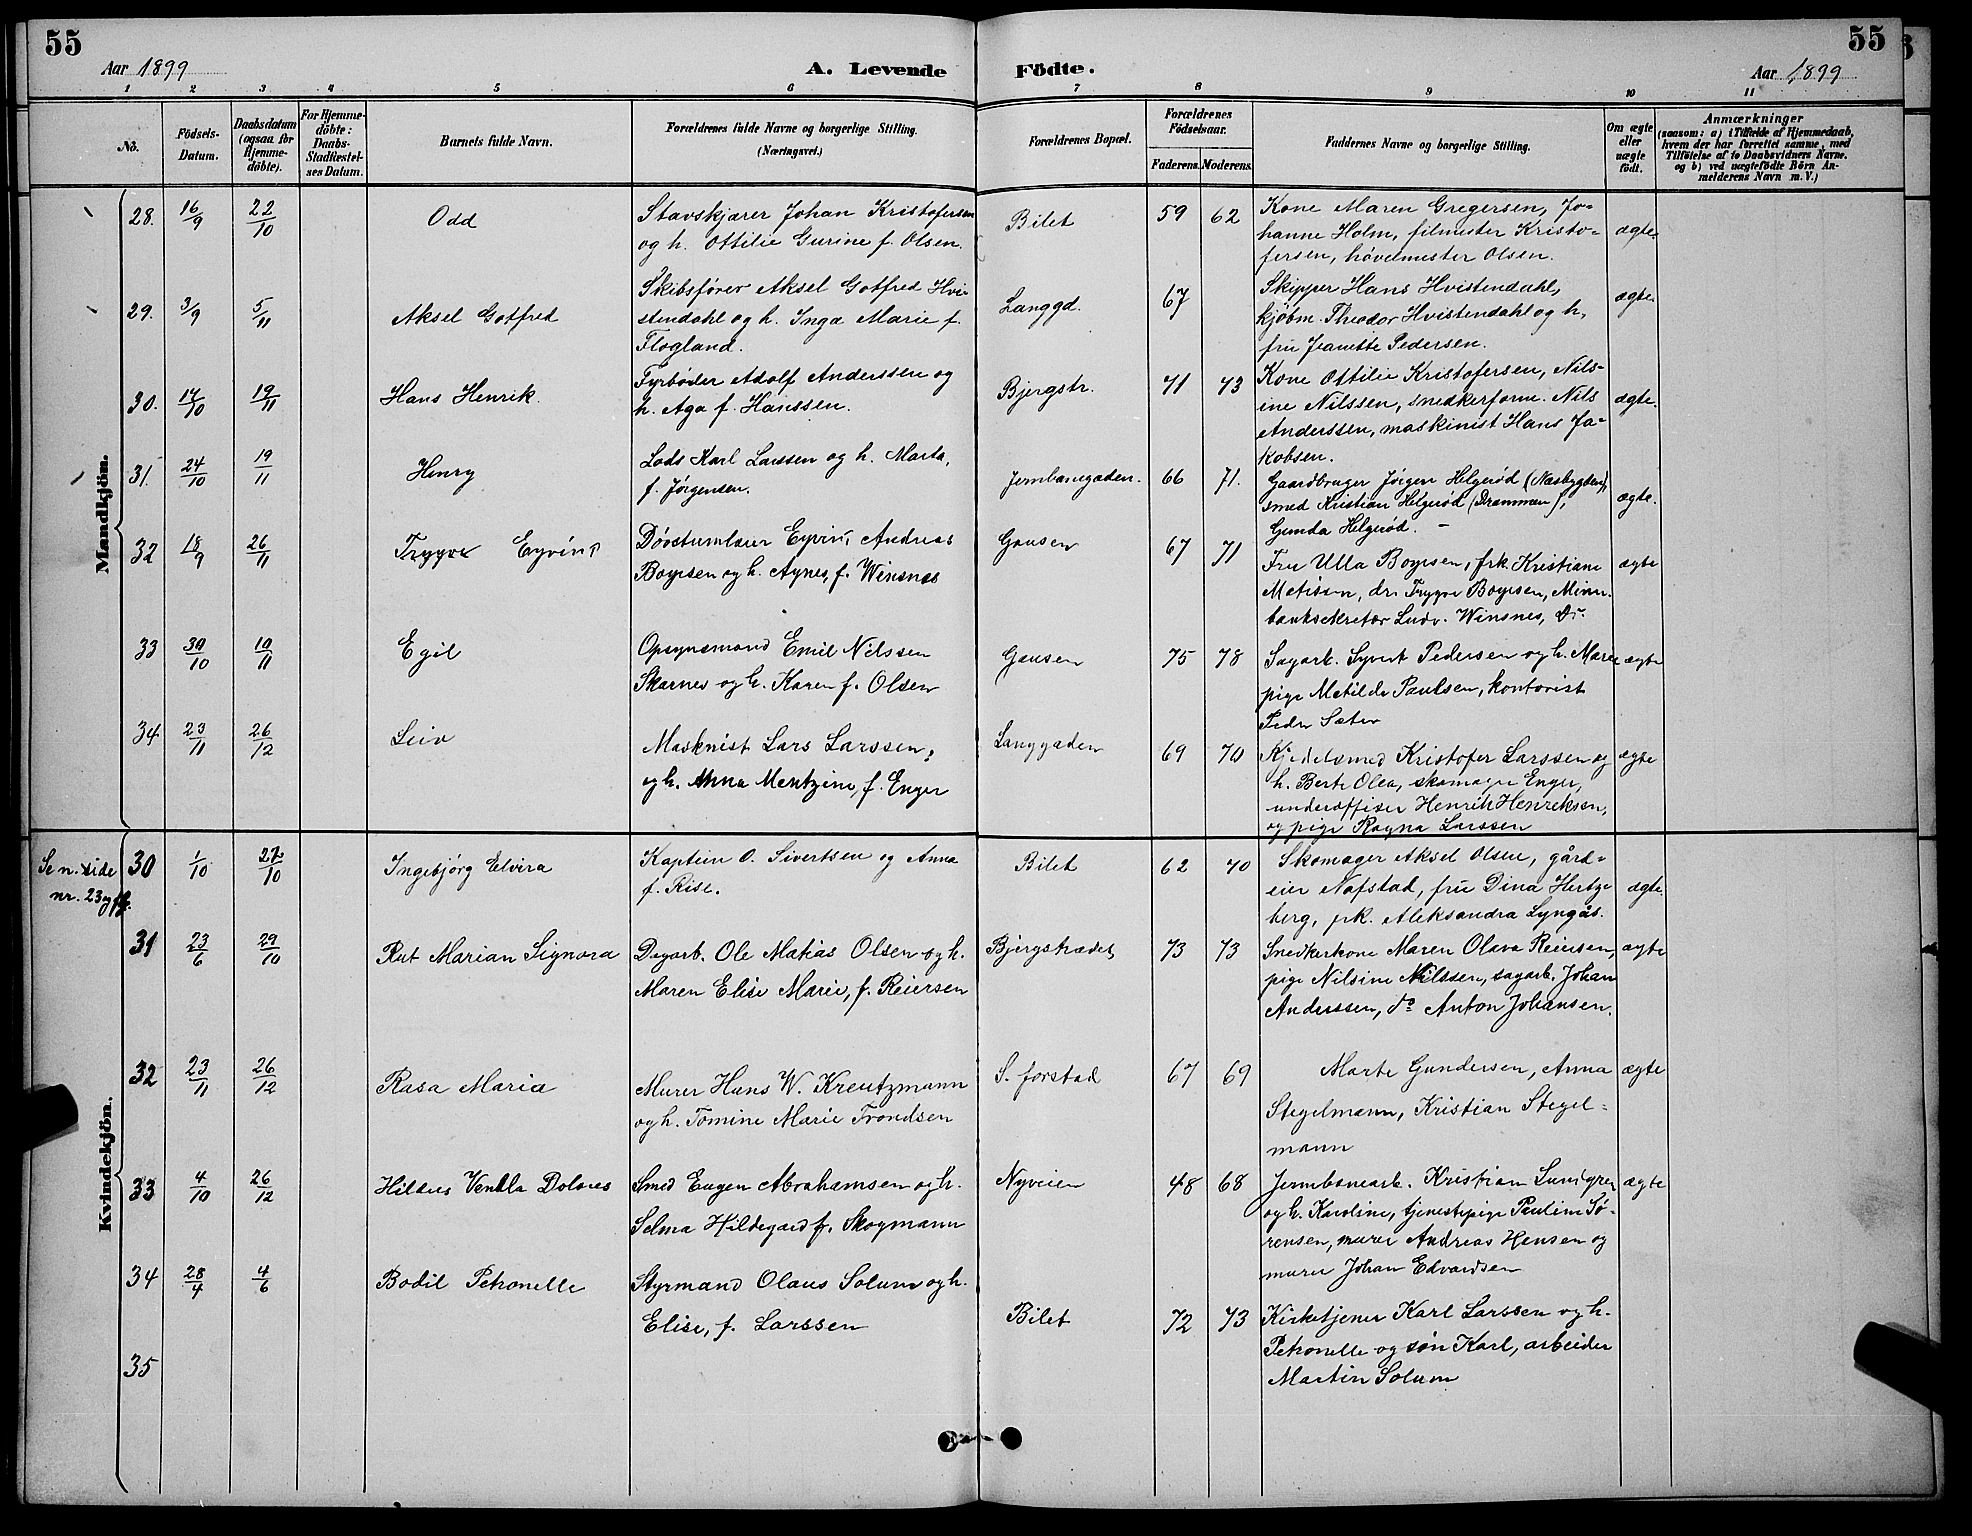 55
Aar 1899
A. Levende Födte.
Aar 1899
55
1 2 3 4 5 6 7 8 9 10 11
No.
Födsels-Datum.
Daabsdatum (ogsaa for Hjemme-döbte).
For Hjemme-döbte: Daabs-Stadfæstel-ses Datum.
Barnets fulde Navn.
Forældrenes fulde Navne og borgerlige Stilling. (Næringsvei.)
Forældrenes Bopæl.
Forældrenes Födselsaar.
Faderens. Moderens.
Faddernes Navne og borgerlige Stilling.
Om ægte eller uægte födt.
Anmærkninger
(saasom: a) i Tilfælde af Hjemmedaab,
hvem der har forrettet samme, med
Tilföielse af to Daabsvidners Navne.
og b) ved uægtefödte Börn An-
melderens Navn m. V.)
Mandkjön.
28. 16/9 22/10 Odd
Stavskjærer Johan Kristofersen
og h. Ottilie Gurine f. Olsen.
Bilet 59 62
Kone Maren Gregersen, Jo-
hanne Holm, filmester Kristo-
fersen, høvelmester Olsen.
ægte.
29. 3/9 5/11 Aksel Gotfred
Skibsfører Aksel Gotfred Hvi-
stendahl og h. Inga Marie f.
Flogland.
Langgd. 67
Skipper Hans Hvistendahl,
kjøbm. Theodor Hvistendahl og h,
fru Jeanette Pedersen.
ægte.
30. 14/10 19/11 Hans Henrik.
Fyrbøder Adolf Anderssen og
h. Aga f. Hanssen.
Bjergstr. 71 73
Kone Ottilie Kristofersen, Nils-
ine Nilssen, snedkerform. Nils
Anderssen, maskinist Hans Ja-
kobsen.
ægte.
31. 24/10 19/11 Henry
Lods Karl Larssen og h. Marta,
f. Jørgensen.
Jernbanegaden. 66 71.
Gaardbruger Jörgen Helgerød (Næsbygden),
smed Kristian Helgerød (Drammen),
Gunda Helgerød. –
ægte.
32 18/9 26/11 Trygve Eyvind
Døvstumlærer Eyvind Andreas
Boyesen og h. Agnes, f. Winsnes
Gausen 67 71
Fru Ulla Boyesen, frk. Kristiane
Matisen, dr. Trygve Boyesen, Minn.
banksekretær Ludv. Winsnes, Dr.
ægte
33 30/10 10/11 Egil
Opsynsmand Emil Nilssen
Skarnes og h. Karen f. Olsen
Gausen 75 78
Sagarb. Syvert Pedersen og h. Maren
pige Metilde Paulsen, kontorist
Peder Sæter
ægte
34 23/11 26/12 Leiv
Maskinist Lars Larssen,
og h. Anna Mentzine, f. Enger
Langgaden 69 70
Kjedelsmed Kristofer Larssen og
h. Berte Olea, skomager Enger,
underoffiser Henrik Henriksen,
og pige Ragna Larssen
ægte
Kvindekjön.
Se n. side
nr. 23 g ff.
30 1/10 22/10 Ingebjörg Elvira
Kaptein O. Sivertsen og Anna
f. Rise.
Bilet 62 70
Skomager Aksel Olsen, gård-
eier Nafstad, fru Dina Hertz-
berg, frk. Aleksandra Lyngås.
ægte.
31 23/6 29/10 Rut Marian Signora
Dagarb. Ole Matias Olsen og h.
Maren Elise Marie, f. Reiersen
Bjergstrædet 73 73
Snedkerkone Maren Olava Reiersen,
pige Nilsine Nilssen, sagarb. Johan
Anderssen, do Anton Johansen.
ægte
32 23/11 26/12 Rasa Maria
Murer Hans W. Kreutzmann
og h. Tomine Marie Trondsen
S. forstad 67 69
Marte Gundersen, Anna
Stegelmann, Kristian Stegel-
mann
ægte
33 4/10 26/12 Hildus Venlla Dolores
Smed Eugen Abrahamsen og h.
Selma Hildegard f. Skogmann
Nyveien 48 68
Jernbanearb. Kristian Lundgren
og h. Karoline, tjenestepige Pauline Sø-
rensen, murer Andreas Hensen og
murer Johan Edvardsen
ægte
34 28/4 4/6 Bodil Petronelle
Styrmand Olaus Solum og h.
Elise, f. Larssen
Bilet 72 73
Kirketjener Karl Larssen og h.
Petronelle og søn Karl, arbeider
Martin Solum
35